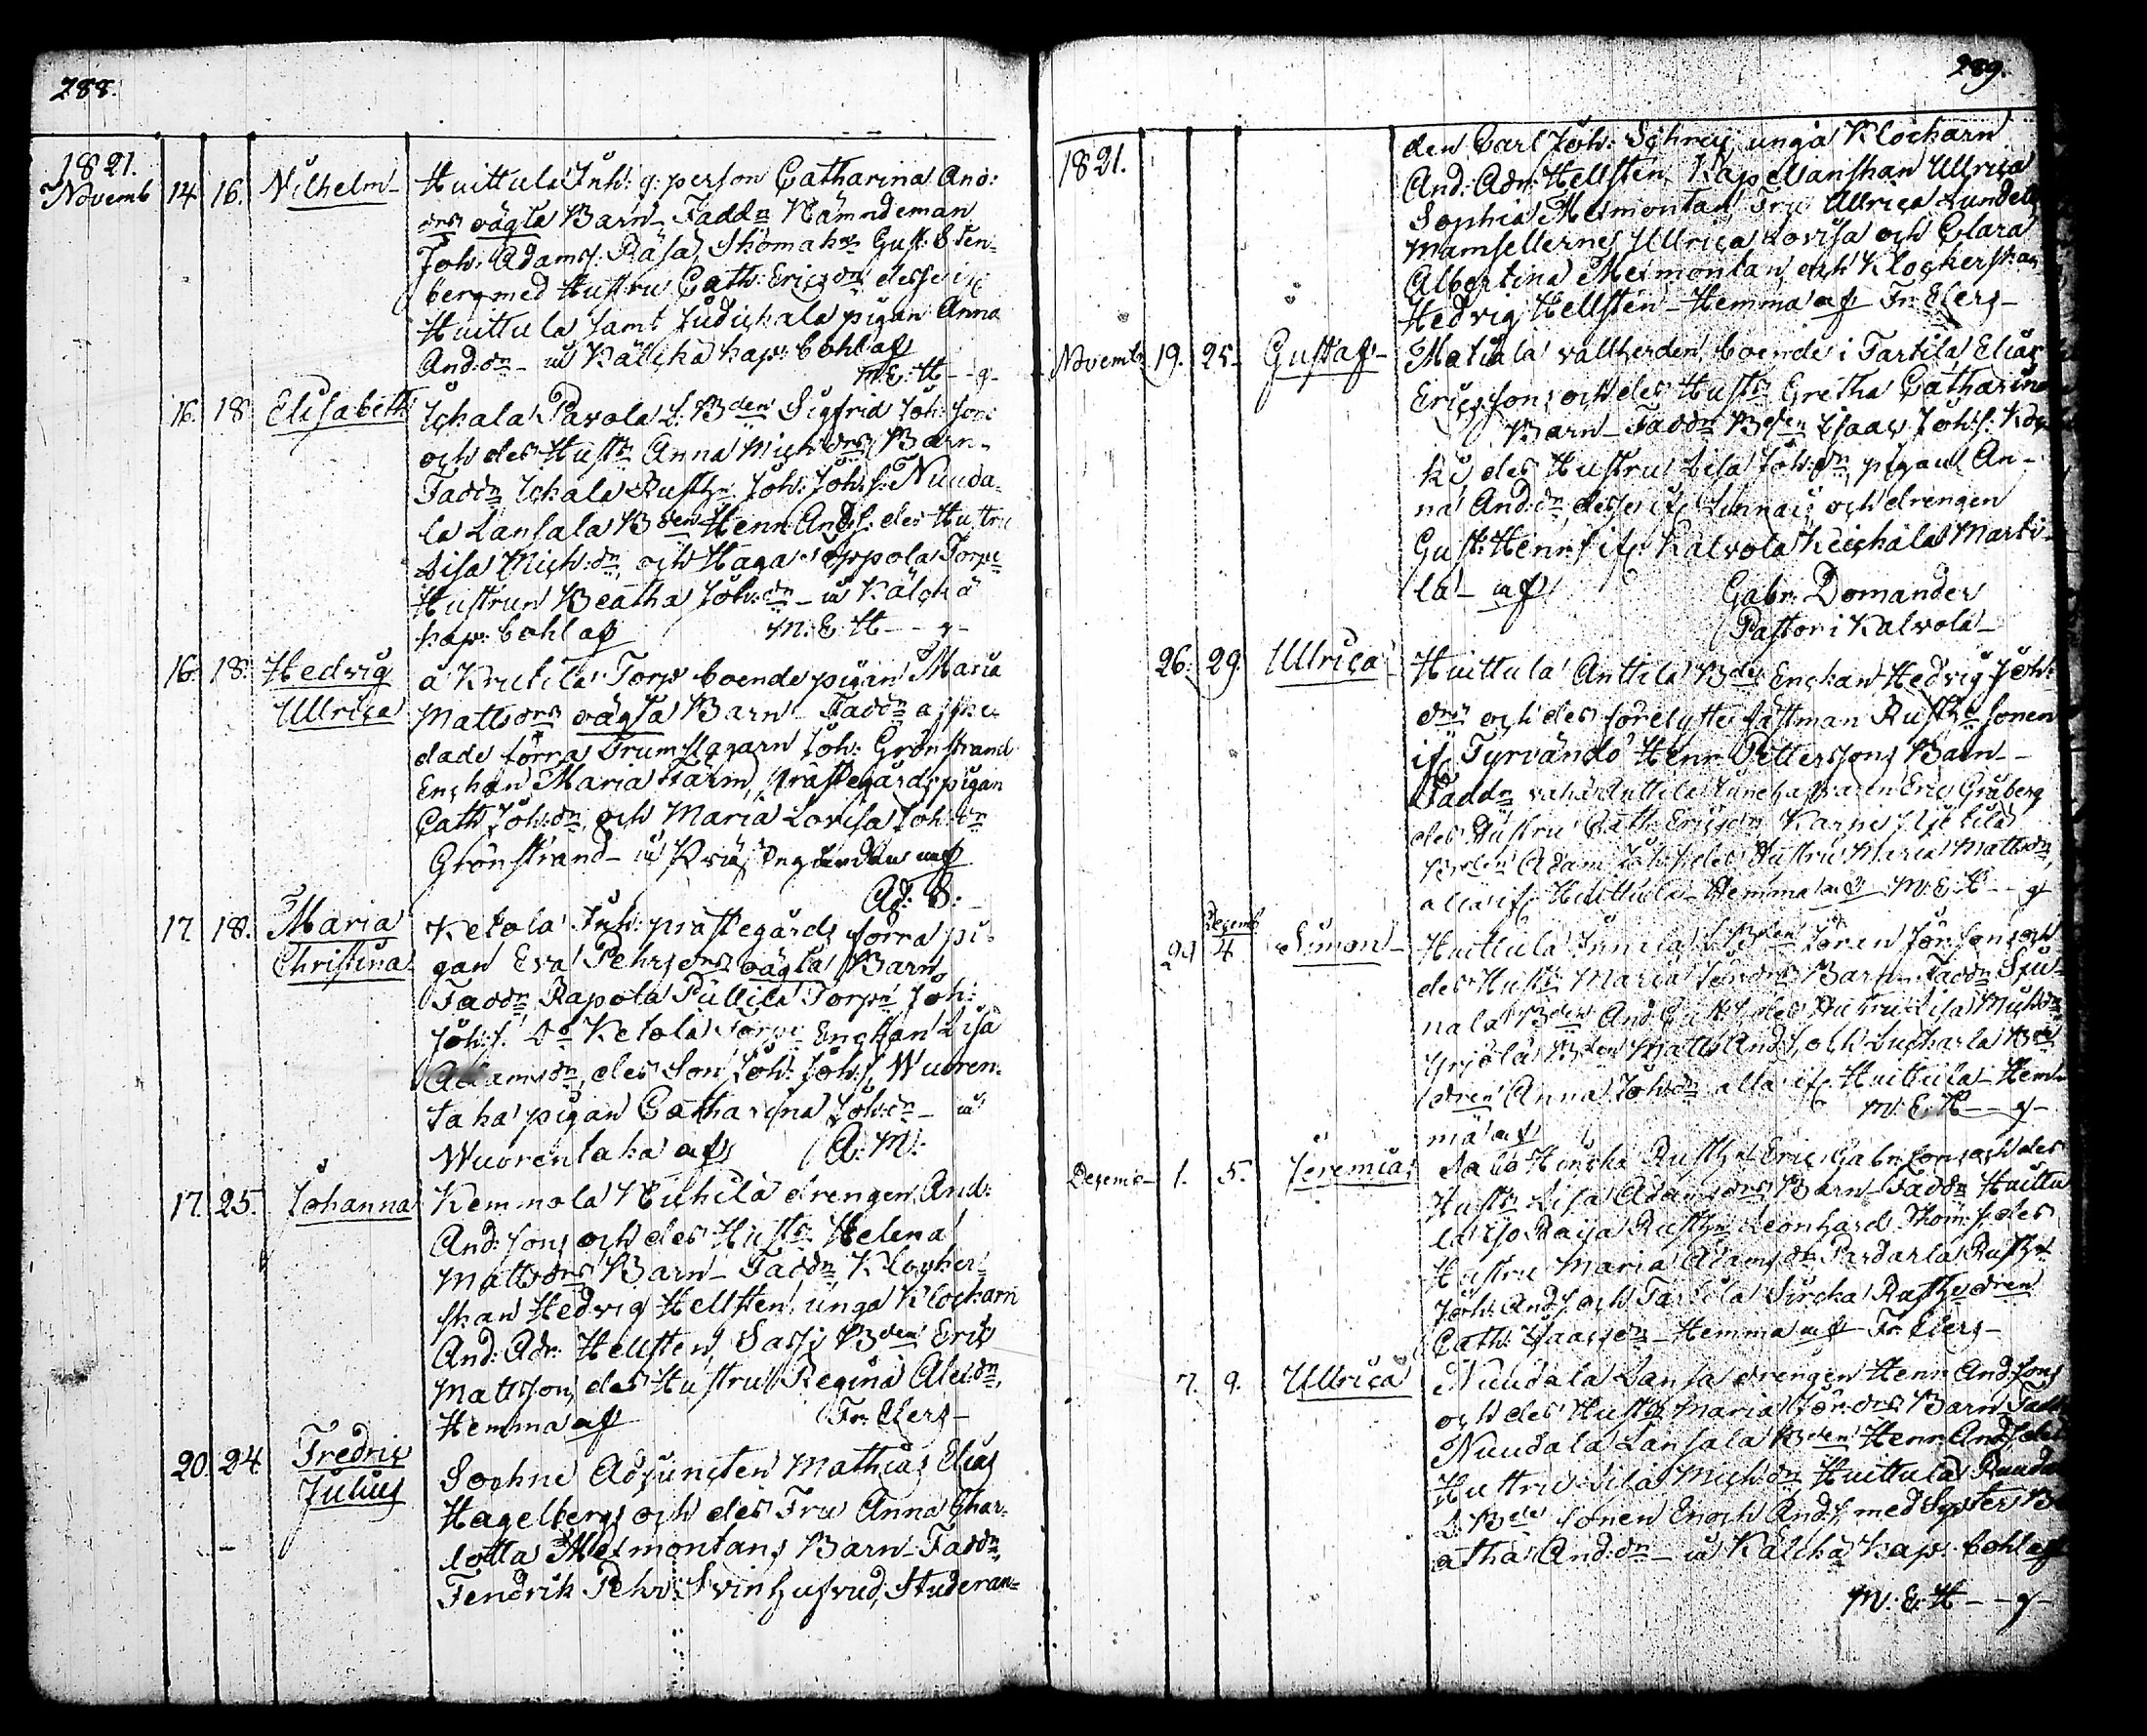 288.
1821.
Novemb 14. 16. Wilhelm- Huittula Inh: q: person Catharina And:
drs oägta Barn. Fadd:n Nämndeman
Joh: Adams: Rasa, Skomak:n Gust: Sten-
berg med Hustru Cath: Ericsdn desse if
Huittula samt Judickala pigan Anna
And:dn - uti Kälckä kap: bohl af
M: E: H--g-
16. 18 Elisabeth Ickala Pavola L: Bden Sigfrid Joh: sons
och des Hustr Anna Mich:drs Barn-
Faddn Ickala Rusth:n Joh: Joh: s: Nuuda-
la Lansala Bden Henr: And: s: des Hustru
Lisa Mich:dn, och Haga Torp:
Hustrun Beatha Joh:dn - uti Kälckä
kap: bohl af M: E: H--g-
16. 18. Hedvig Ullrica å Krutila Torp boende pigan Maria
Mattsdrs oägta Barn - Faddn afske-
dade förra Trumslagarn Joh: Grönstrand
Enckan Maria Harm, Prästegårds pigan
Cath: Joh:dn, och Maria Lovisa Joh:dn
Grönstrand - uti Prästegården af
Ad: S:
17. 18. Maria Christina Ketola Inh: prästegårds förra pi-
gan Eva Pehrsdrs oägta Barn
Faddn Rapola Pullila Torp:n Joh:
Joh: s: Do Ketola Torp: Enckan Lisa
Adamsdn, des Son Joh: Joh: s, Wuoren-
taka pigan Catharina Joh:dn - uti
Wuorentaka af A: M:
17. 25. Johanna Kemmola drengen And:
And: sons och des Hustr Helena
Mattsdrs Barn - Faddn Klocker-
skan Hedvig Hellsten, unga Klockarn
And: Adr: Hellsten, Sassi Bden Eric
Mattsson, des Hustru Regina Alex:dn,
Hemma af Fr: Elers-
20. 24 Fredric Julius Sockne Adjuncten Mathias Elias
Hagelbergs och des Fru Anna Char-
lotta Melmontans Barn - Faddn,
Fendrik Pehr Svinhufvud, Studeran-
289.
1821.
den Carl Joh: unga Klockarn
And: Adr: Hellsten, Kapellanskan Ullrica
Sophia Melmontan, Fru Ullrica
Mamsellerne Ullrica Lovisa och Clara
Albertina Melmontan, och Klockerskan
Hedvig Hellsten - Hemma af Fr: Elers-
Novemb 19. 25- Gustaf- Matiala vallherden boende i Tartila Elias
Ericssons och des Hustr Gretha Catharina
Barn - Faddn Bden Isaac Joh: s:
des Hustru Lisa Joh:dn, pigan An-
na And:dn, desse if och drengen
Gust: Henr: s if Kalvola Keickala Marti-
la - af Gabr: Domander
Pastor i Kalvola-
26. 29. Ullrica Huittula Anttila Bde Enckan Hedvig Joh:
drs och des förelyfte fästman Rusth:n sonen
if Tyrvändö Henr: Petterssons Barn--
Faddn Anttila Eric Gruberg
des Hustru Cath: Ericsdn
Bden Adam Joh: s, des Hustru Maria Mattsdn,
alla if Huittula - Hemma af M: E: H--g-
29 Decemb 4. Simon- Huittula L Bden Jören Jörsons och
des Hustr Maria Barn - Faddn
nala Bden And: des Hustru Lisa
Yrjölä Bden Matts And: s, och
dren Anna Joh:dn alla if Huittula - Hem-
ma af M: E: H--g-
Decemb- 1. 5. Jeremias Rusth:n Eric Gabr: sons och des
Hustr Lisa Adamsdrs Barn - Faddn Huittu
la Iso Raija Rusth:n Leonhard Thom: s, des
Hustru Maria Adamsdn, Rusth:n
Joh: And: s, och Tartila Rusth: dren
Cath: Isaacsdn - Hemma af Fr: Elers-
7. 9. Ullrica Nuudala Lansa drengen Henr: And: sons
och des Hustr Maria Jör:drs Barn Fadd
Nuudala Lansala Bden Henr: And: s, des
Hustru Lisa Mich:dn Huittula
L Bde sonen Enoch And: s, med Syster Be
atha And:dn - uti Kälckä kap: bohl af
M: E: H--g-